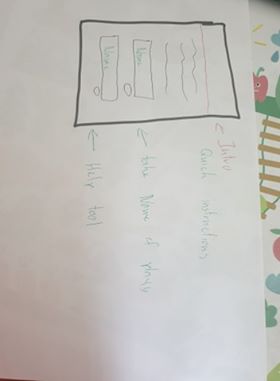 Intro
Quick instructions
Name
take Name of
Name
Help tool